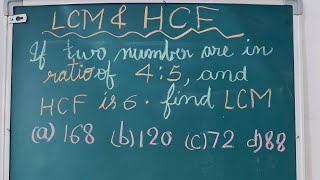 LCM & HCF
If two number are in
ratio of 4:5, and
HCF is 6. find LCM
(a) 168 (b) 120 (c) 72 d) 88